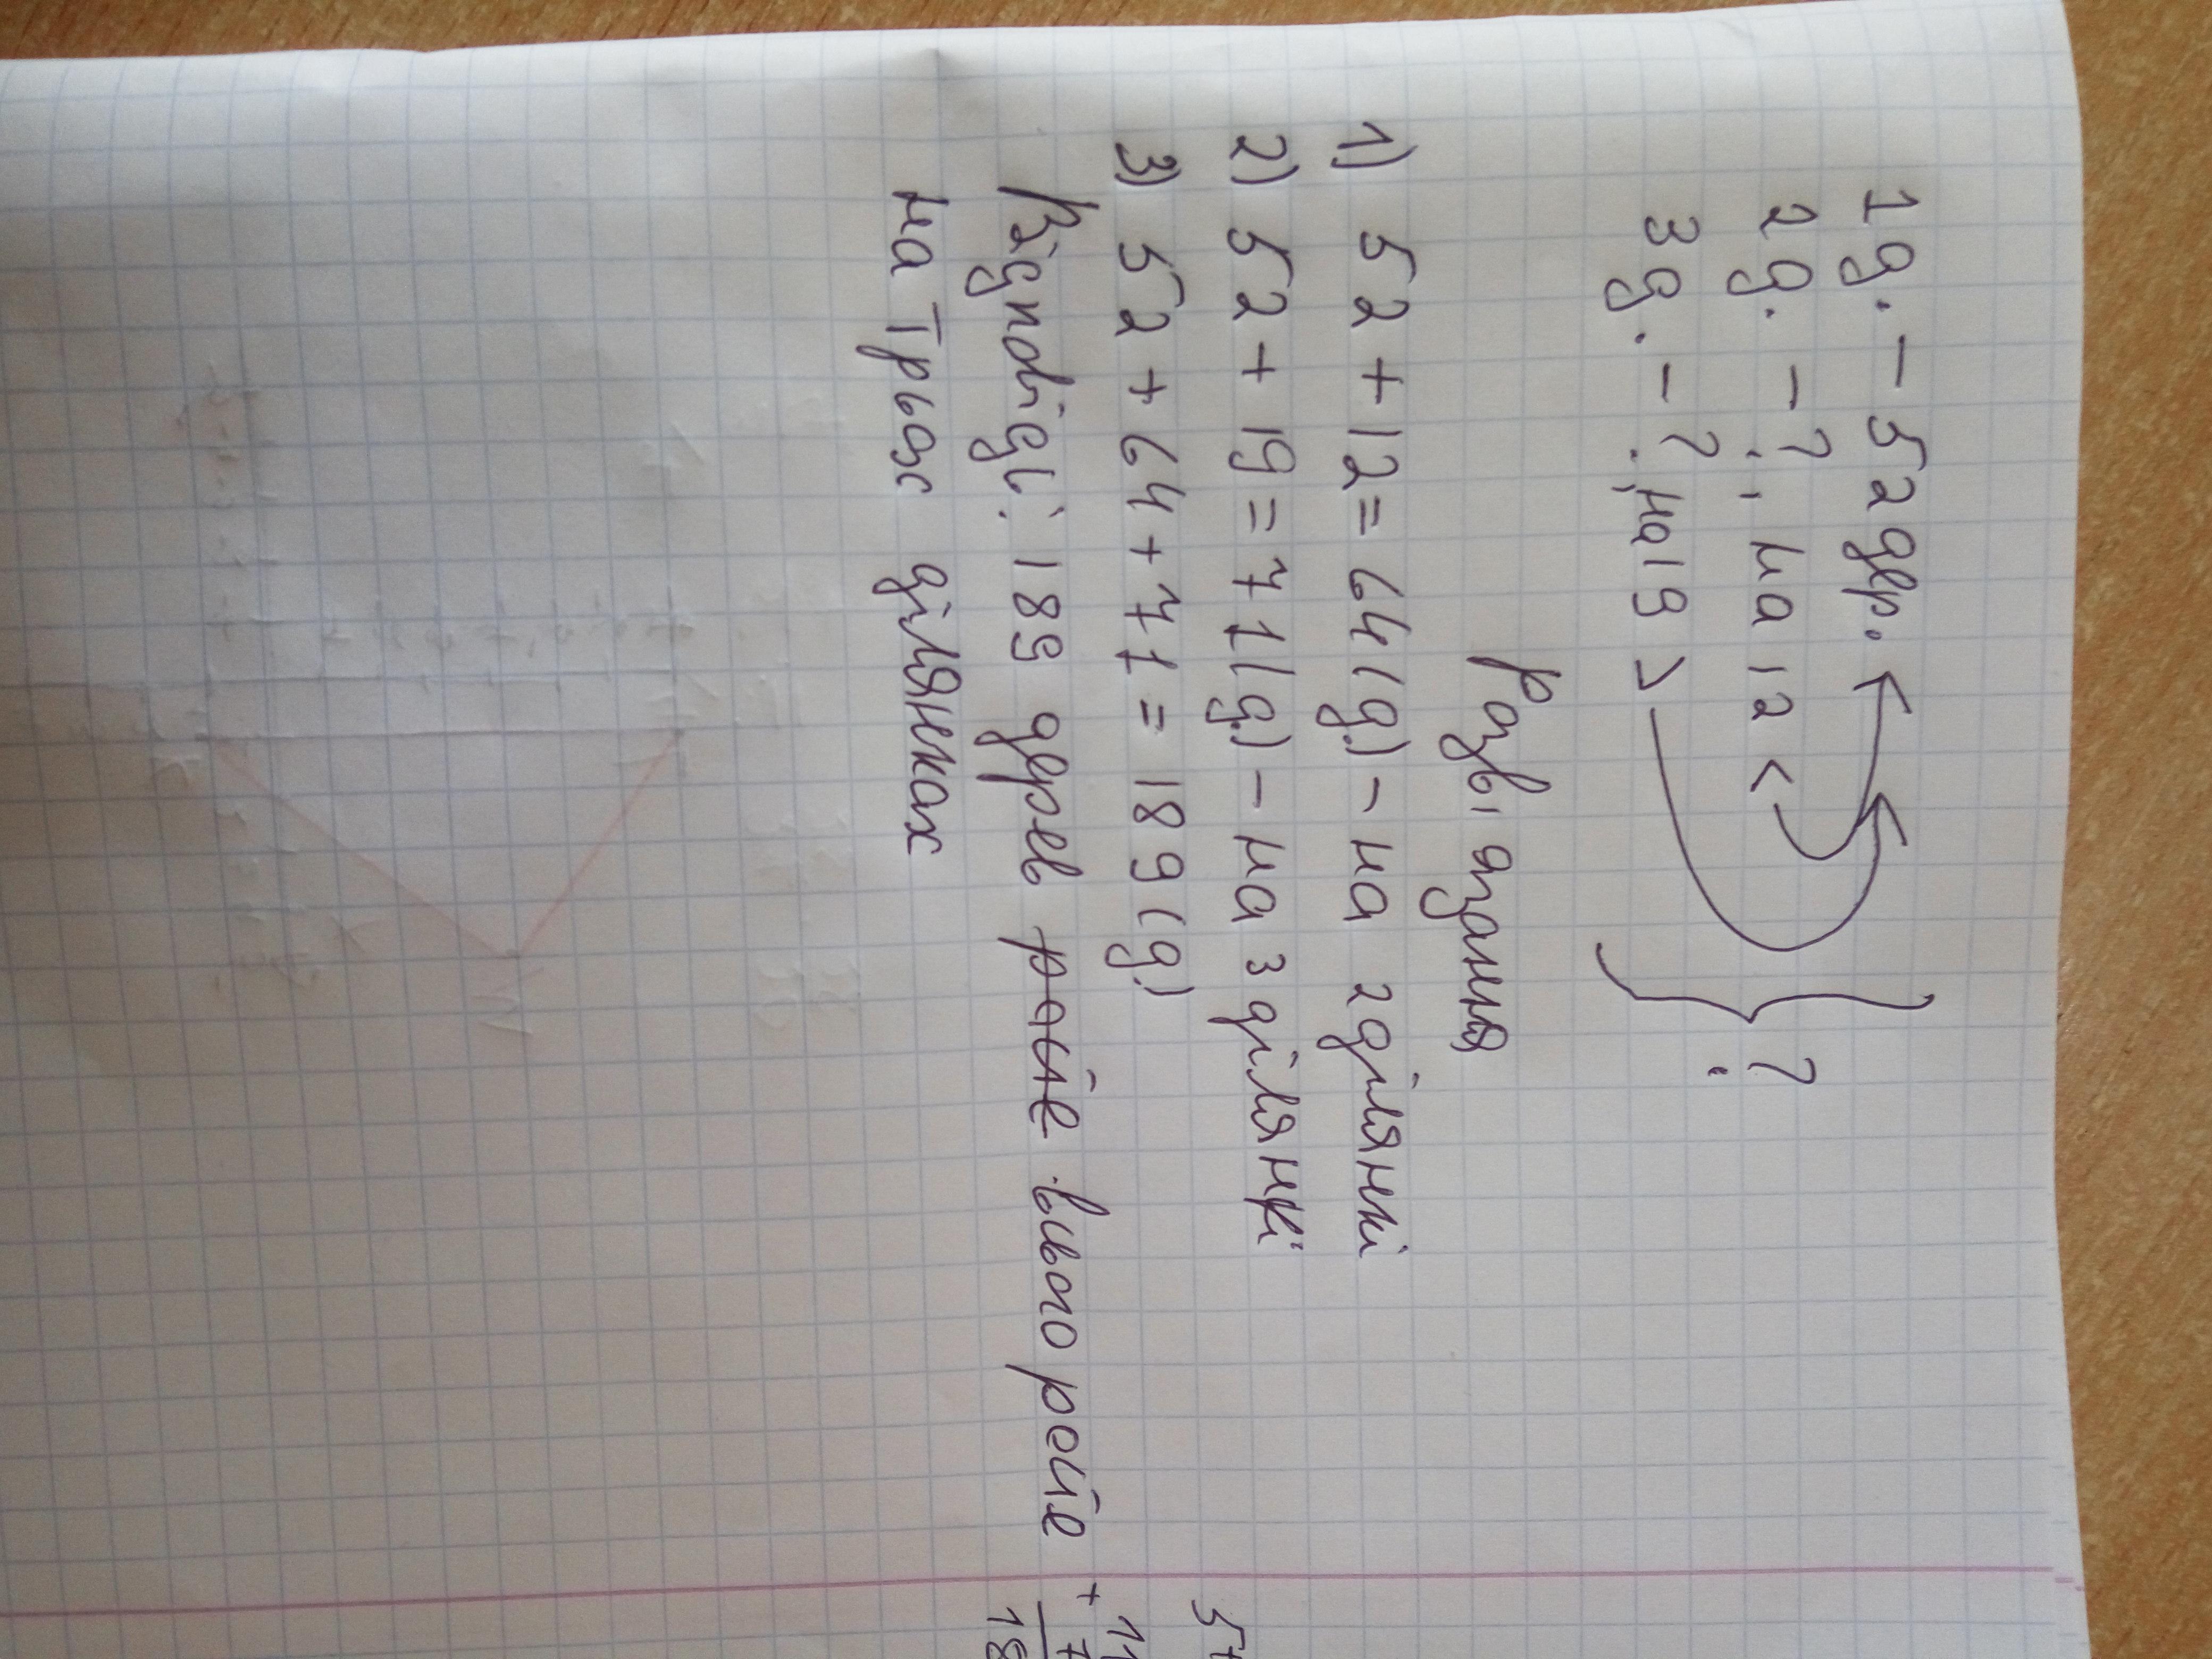 1д. - 52 дер.
2д. - ?, на 12 <
3д. - ?, на 19 > ?
Розв'язання
1) 52 + 12 = 64 (д.) - на 2 ділянкі
2) 52 + 19 = 71 (д.) - на 3 ділянкі
3) 52 + 64 + 71 = 189 (д.)
Відповіді: 189 дерев росте всього росте
на трьох ділянках
5+
+ 11
7
18